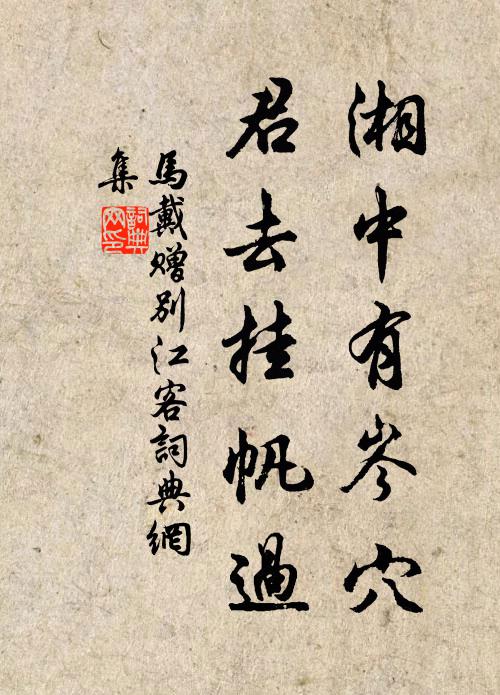 湘中有岑穴
君去挂帆過
馬戴贈別江客詞典網
集
詞典
网印